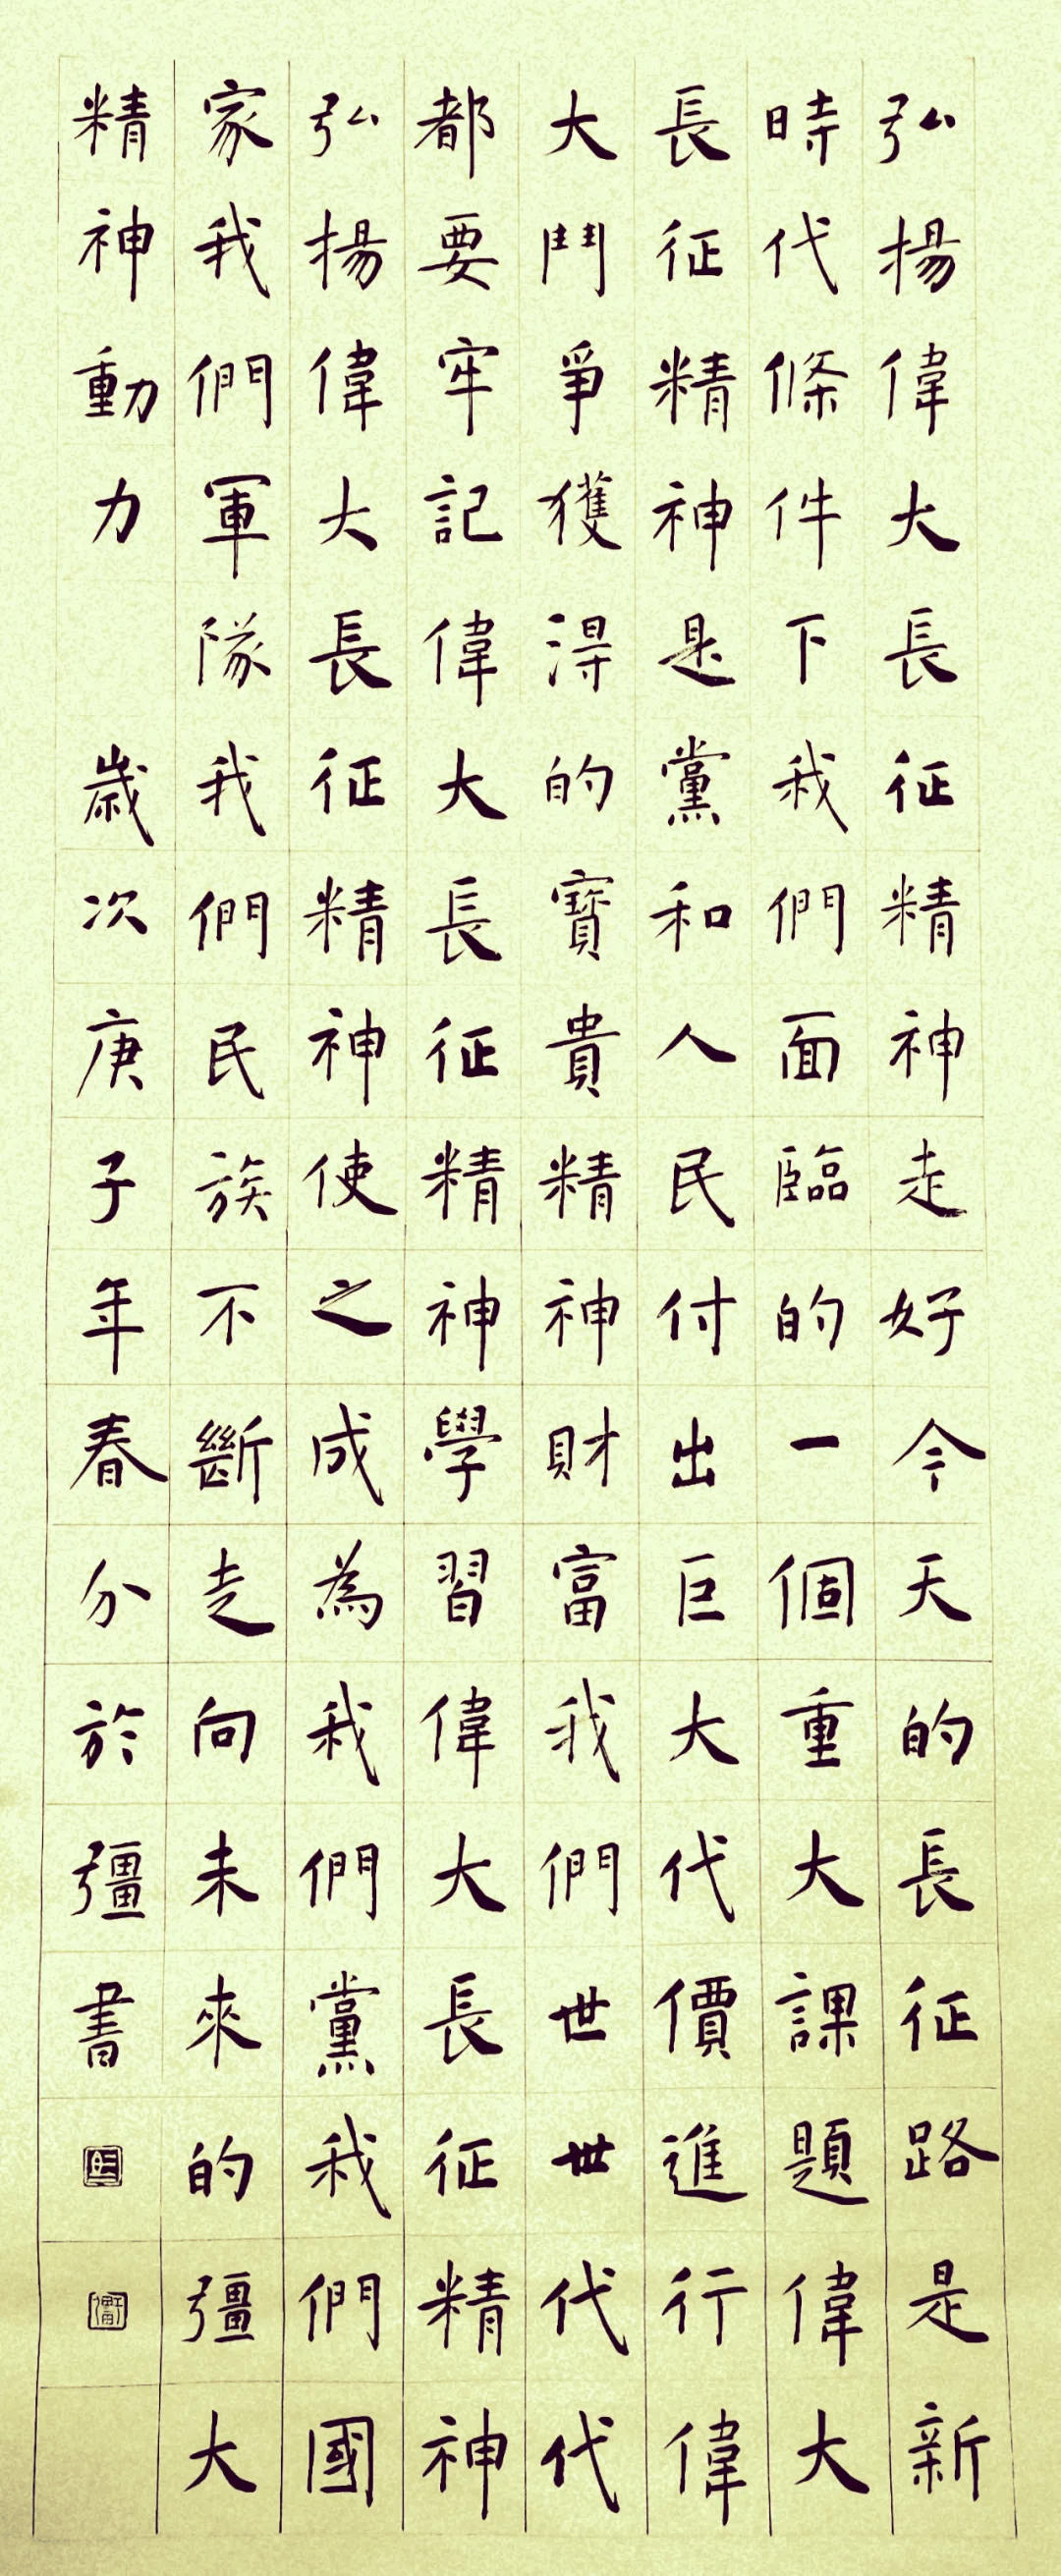 弘揚偉大長征精神走好今天的長征路是新
時代條件下我們面臨的一個重大課題偉大
長征精神是黨和人民付出巨大代價進行偉
大鬥爭獲得的寶貴精神財富我們世世代代
都要牢記偉大長征精神學習偉大長征精神
弘揚偉大長征精神使之成為我們黨我們國
家我們軍隊我們民族不斷走向未來的彊大
精神動力 歲次庚子年春分於彊書